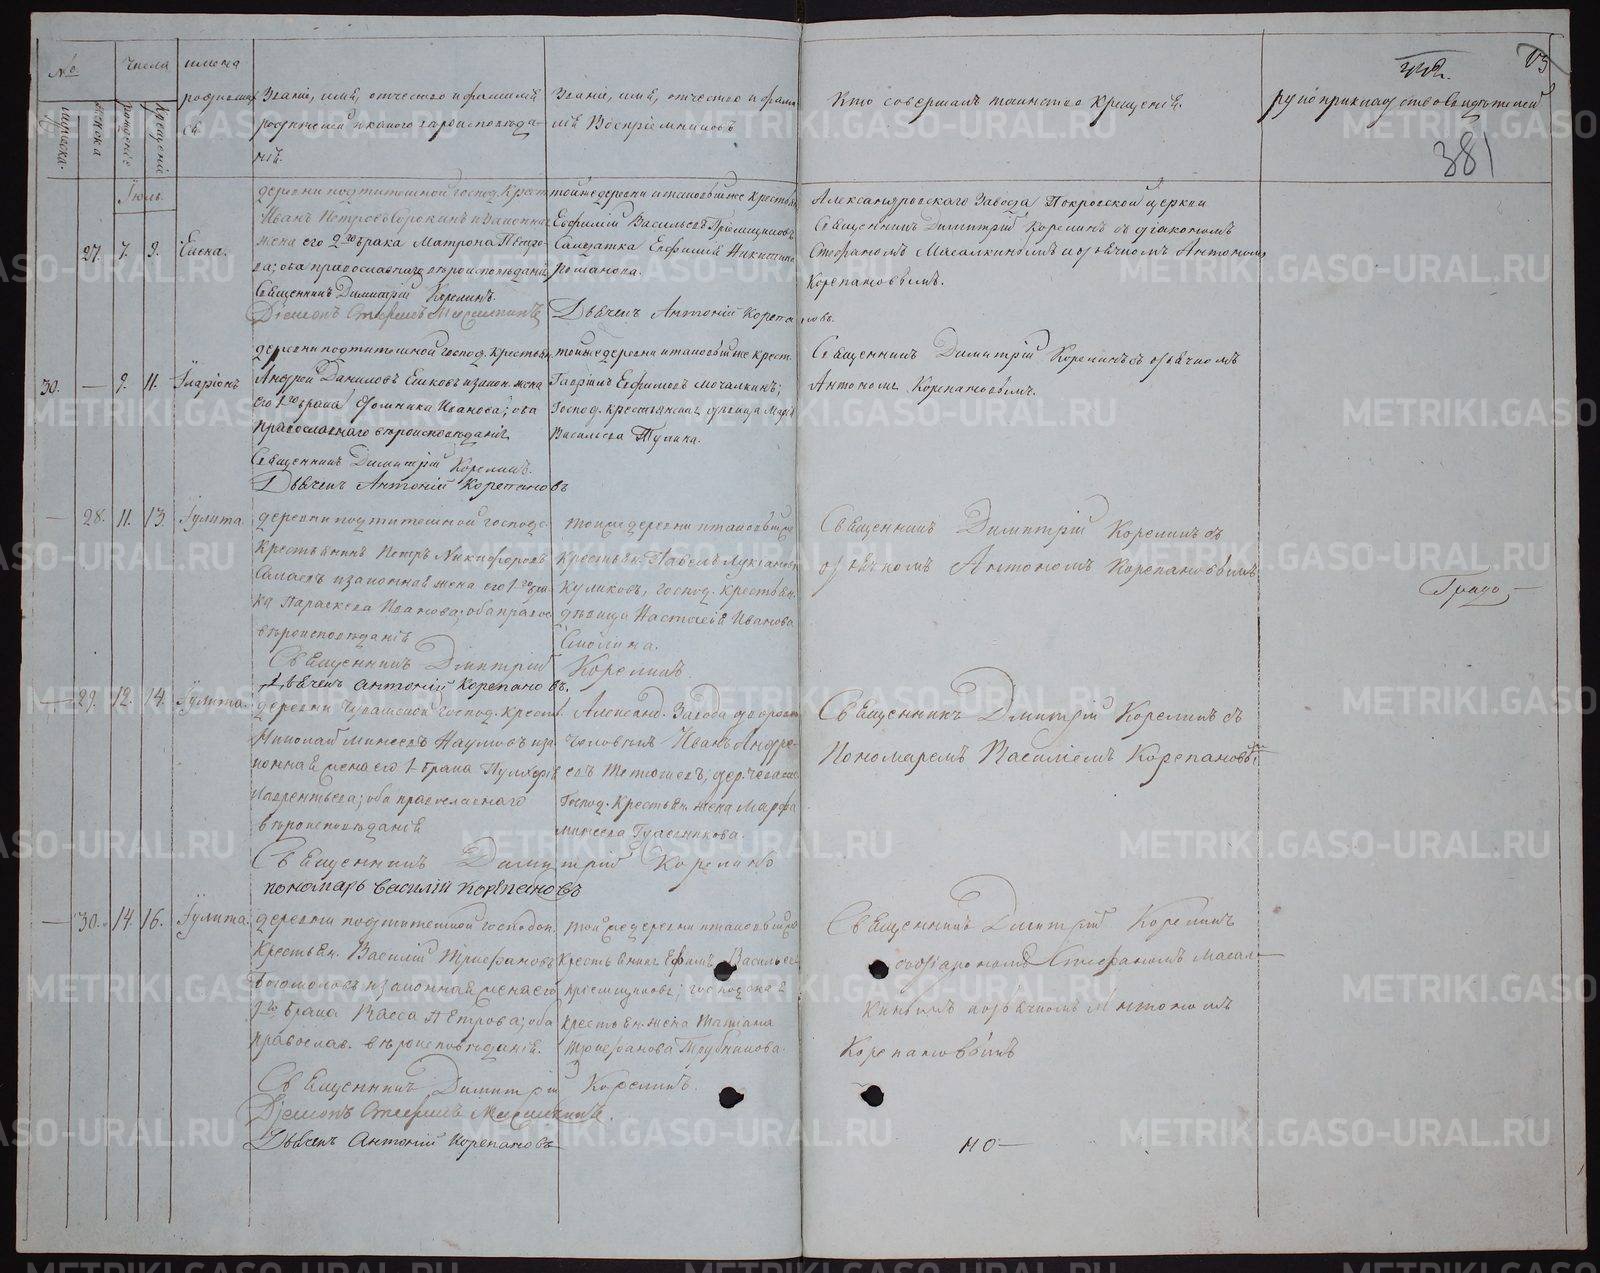 №
мужеска.
женска
числа
рожденіе
крещеніе
имена
родившихся
Званіе, имя, отчество и фамилія
родителей и какого вѣроисповѣда-
нія.
Званіе, имя, отчество и фами-
лія Воспріемниковъ
Кто совершалъ таинство крещенія.
рукоприкладство свидѣтелей
381
Іюль.
27. 7. 9. Елена.
деревни подтитешной господ. Крест.
Иванъ Петровъ Сорокинъ и законная
жена его 2го брака Матрона Петро-
ва; оба православнаго вѣроисповѣданія
Священникъ Димитрій Корелинъ.
Діаконъ Стефанъ Масалкинъ
тойже деревни и таковый же крестьян.
Евфимій Васильевъ Пріемщиковъ
Солдатка Евфимія Никитина
Романова.
Дьячекъ Антоній Корепановъ.
Александровскаго Завода Покровской церкви
Священникъ Димитрій Корелинъ съ діакономъ
Стефаномъ Масалкинымъ и дьячкомъ Антономъ
Корепановымъ.
30. — 9. 11. Іларіонъ
деревни подтитешной господ. крестьян.
Андрей Даниловъ Ешковъ и закон. жена
его 1го брака Домника Иванова; оба
православнаго вѣроисповѣданія
Священникъ Димитрій Корелинъ.
Дьячекъ Антоній Корепановъ
тойже деревни и таковый же крест.
Гавріилъ Евфимовъ Мочалкинъ;
Господ. крестьянская дѣвица Марья
Васильева Тулина.
Священникъ Димитрій Корелинъ съ дьячкомъ
Антономъ Корепановымъ.
— 28. 11. 13. Іулита
деревни подтитешной господс.
Крестьянинъ Петръ Никифоровъ
и законная жена его 1го бра-
ка Параскева Иванова; оба правос.
вѣроисповѣданія
Священникъ Димитрій Корелинъ.
Дьячекъ Антоній Корепановъ.
тойже деревни и таковый же
крестьян. Павелъ Лукіановъ
Куликовъ, господ. крестьян.
дѣвица Настасія Иванова
Смолина.
Священникъ Димитрій Корелинъ съ
дьячкомъ Антономъ Корепановымъ
— 29. 12. 14. Іулита.
деревни Чувашской Господ. Крест.
Николай Минеевъ Наумовъ и за-
конная жена его 1 брака Пулхерія
Лаврентьева; оба православнаго
вѣроисповѣданія
Священникъ Димитрій Корелинъ
пономарь Василій Корепановъ
Александ. Завода дворовой
человѣкъ Иванъ Андре-
евъ
Господ. Крестьян. жена Марфа
Минеева
Священникъ Димитрій Корелинъ съ
Пономаремъ Василіемъ Корепановымъ
— 30. 14. 16. Іулита.
деревни подтитешной господск.
Крестьян. Василій Трифановъ
Богомоловъ и законная жена его
2го брака Васса Петрова; оба
православ. вѣроисповѣданія.
Священникъ Димитрій Корелинъ.
Діаконъ Стефанъ Масалкинъ.
Дьячекъ Антоній Корепановъ
тойже деревни и таковый же
Крестьянинъ Ефимъ Васильевъ
Пріемщиковъ; господская
крестьян. жена Татіана
Трифанова Трубникова.
Священникъ Димитрій Корелинъ
со діакономъ Стефаномъ Масал-
кинымъ и дьячкомъ Антономъ
Корепановымъ
METRIKI.GASO-URAL.RU